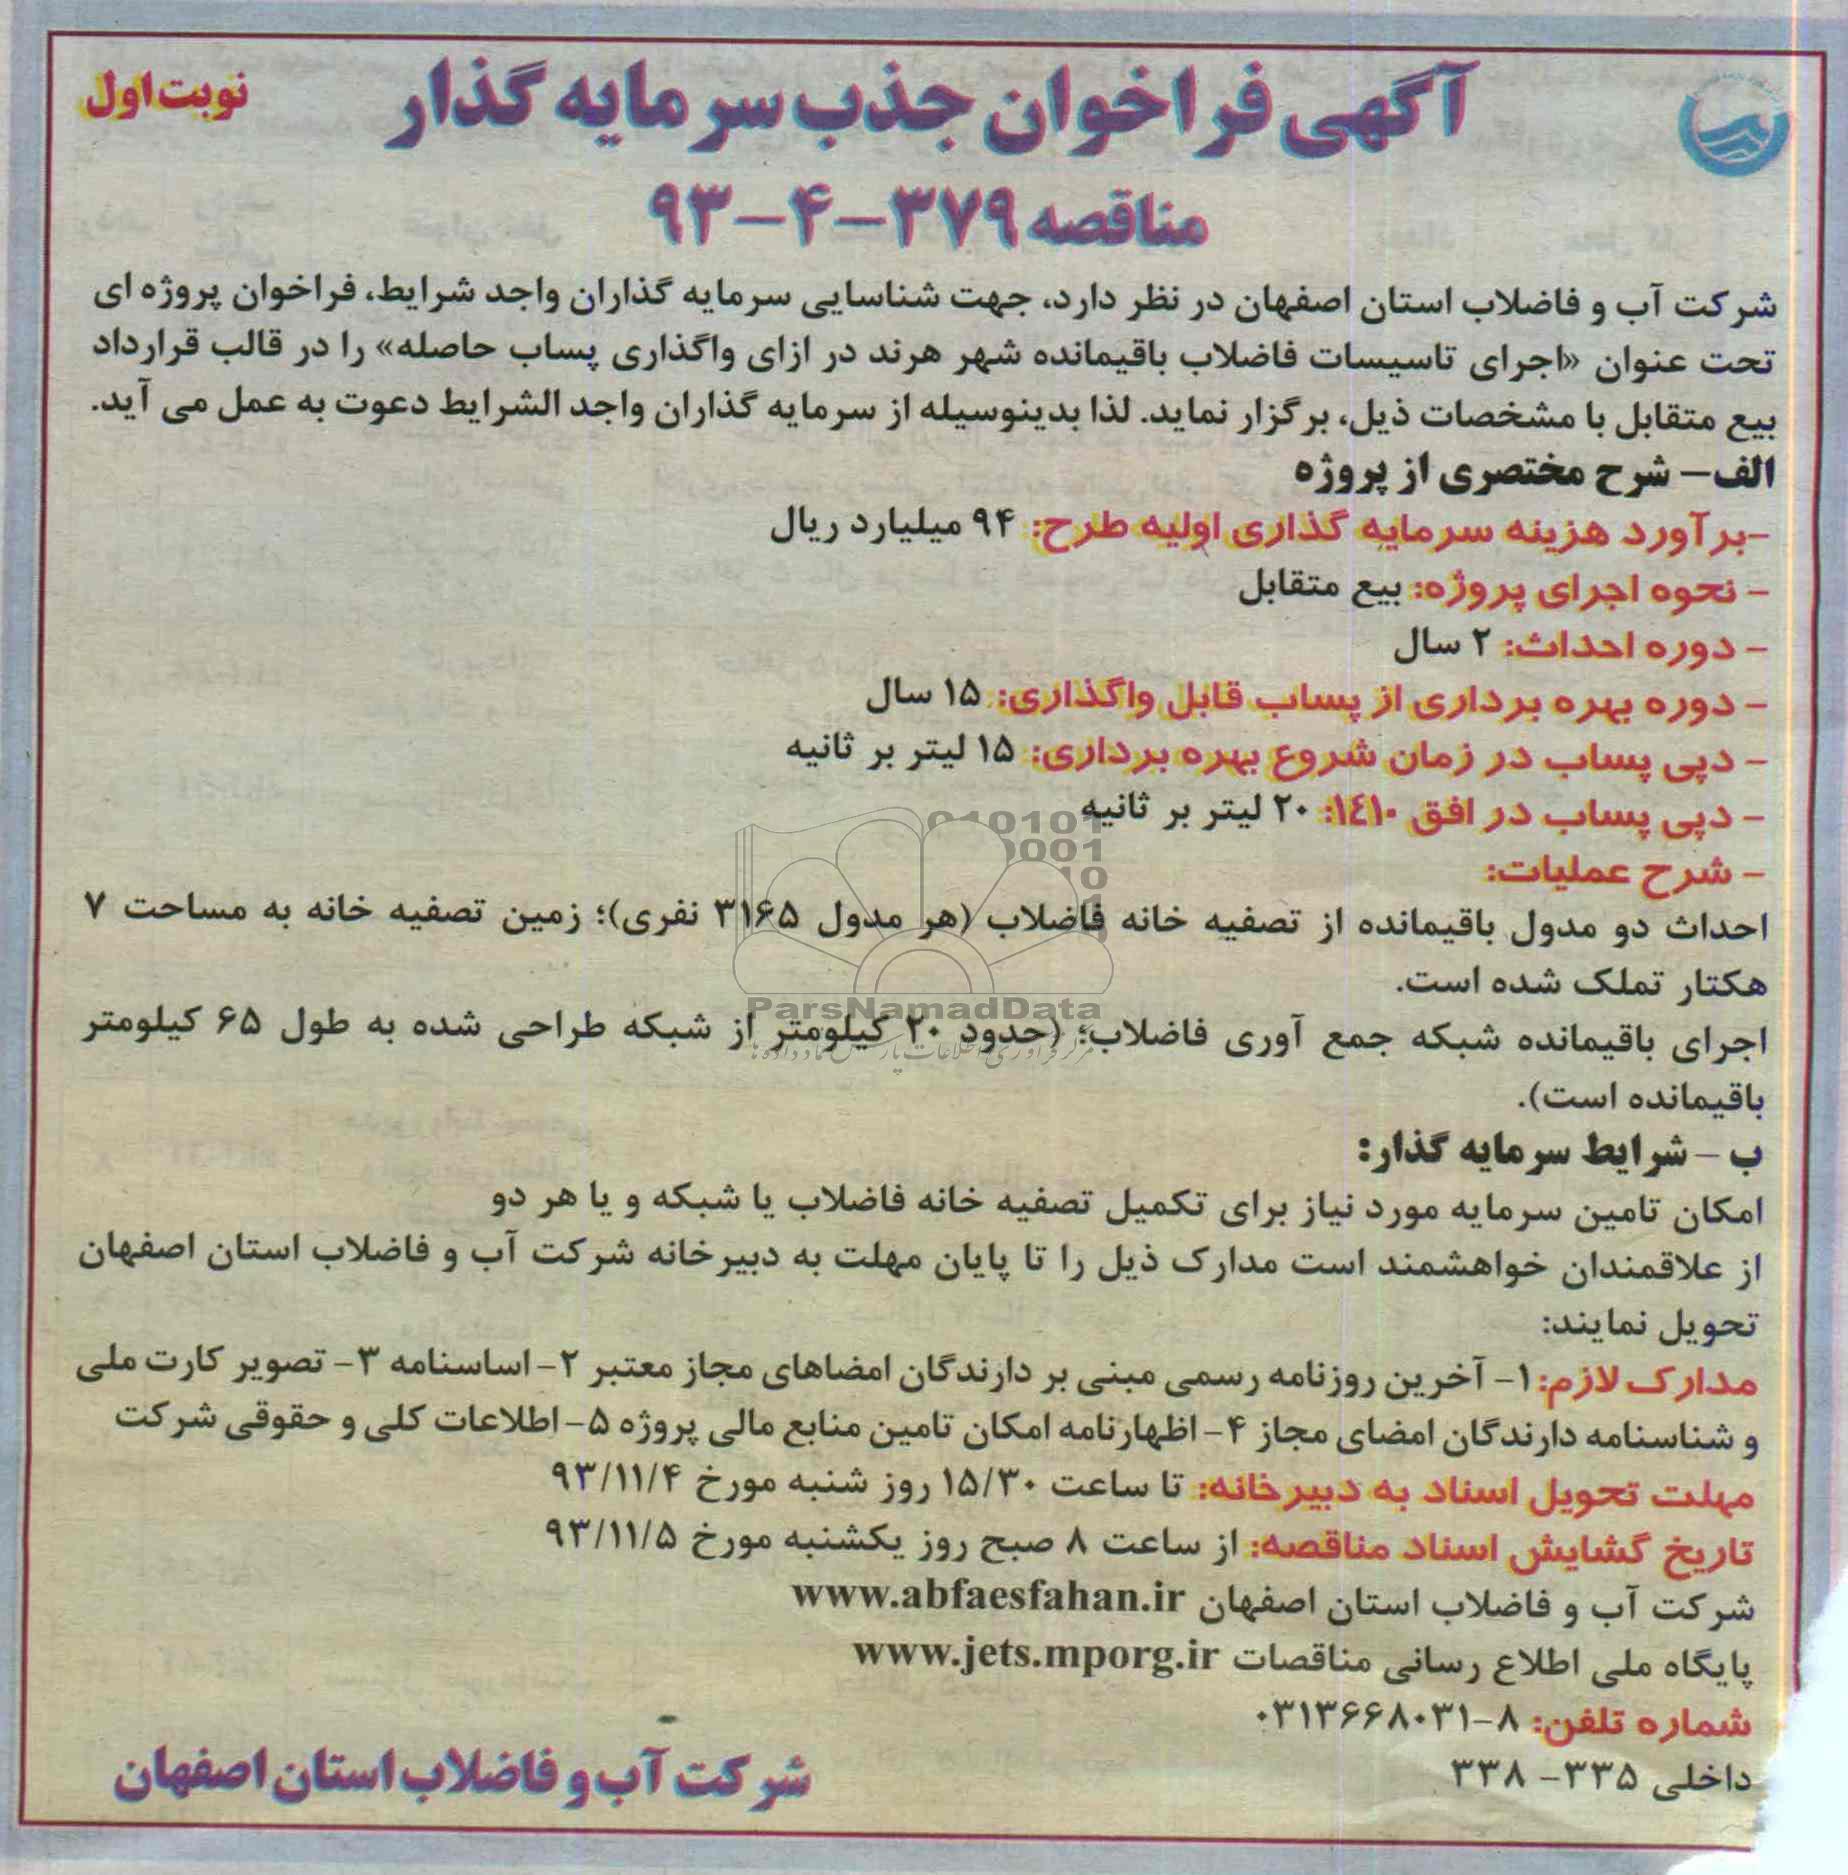 آگهی فراخوان جذب سرمایه گذار
نوبت اول
مناقصه ۳۷۹-۴-۹۳
شرکت آب و فاضلاب استان اصفهان در نظر دارد، جهت شناسایی سرمایه گذاران واجد شرایط، فراخوان پروژه ای
تحت عنوان «اجرای تاسیسات فاضلاب باقیمانده شهر هرند در ازای واگذاری پساب حاصله» را در قالب قرارداد
بیع متقابل با مشخصات ذیل، برگزار نماید. لذا بدینوسیله از سرمایه گذاران واجد الشرایط دعوت به عمل می آید.
الف- شرح مختصری از پروژه
-برآورد هزینه سرمایه گذاری اولیه طرح: ۹۴ میلیارد ریال
- نحوه اجرای پروژه: بیع متقابل
- دوره احداث: ۲ سال
- دوره بهره برداری از پساب قابل واگذاری: ۱۵ سال
- دپی پساب در زمان شروع بهره برداری: ۱۵ لیتر بر ثانیه
- دپی پساب در افق ۱٤۱۰: ۲۰ لیتر بر ثانیه
- شرح عملیات:
احداث دو مدول باقیمانده از تصفیه خانه فاضلاب (هر مدول ۳۱۶۵ نفری)؛ زمین تصفیه خانه به مساحت ۷
هکتار تملک شده است.
اجرای باقیمانده شبکه جمع آوری فاضلاب؛ (حدود ۲۰ کیلومتر از شبکه طراحی شده به طول ۶۵ کیلومتر
باقیمانده است).
ب - شرایط سرمایه گذار:
امکان تامین سرمایه مورد نیاز برای تکمیل تصفیه خانه فاضلاب یا شبکه و یا هر دو
از علاقمندان خواهشمند است مدارک ذیل را تا پایان مهلت به دبیرخانه شرکت آب و فاضلاب استان اصفهان
تحویل نمایند:
مدارک لازم: ۱- آخرین روزنامه رسمی مبنی بر دارندگان امضاهای مجاز معتبر ۲- اساسنامه ۳- تصویر کارت ملی
و شناسنامه دارندگان امضای مجاز ۴- اظهارنامه امکان تامین منابع مالی پروژه ۵- اطلاعات کلی و حقوقی شرکت
مهلت تحویل اسناد به دبیرخانه: تا ساعت ۱۵/۳۰ روز شنبه مورخ ۹۳/۱۱/۴
تاریخ گشایش اسناد مناقصه: از ساعت ۸ صبح روز یکشنبه مورخ ۹۳/۱۱/۵
شرکت آب و فاضلاب استان اصفهان www.abfaesfahan.ir
پایگاه ملی اطلاع رسانی مناقصات www.jets.mporg.ir
شماره تلفن: ۸-۰۳۱۳۶۶۸۰۳۱
داخلی ۳۳۵- ۳۳۸
شرکت آب و فاضلاب استان اصفهان
ParsNamadData